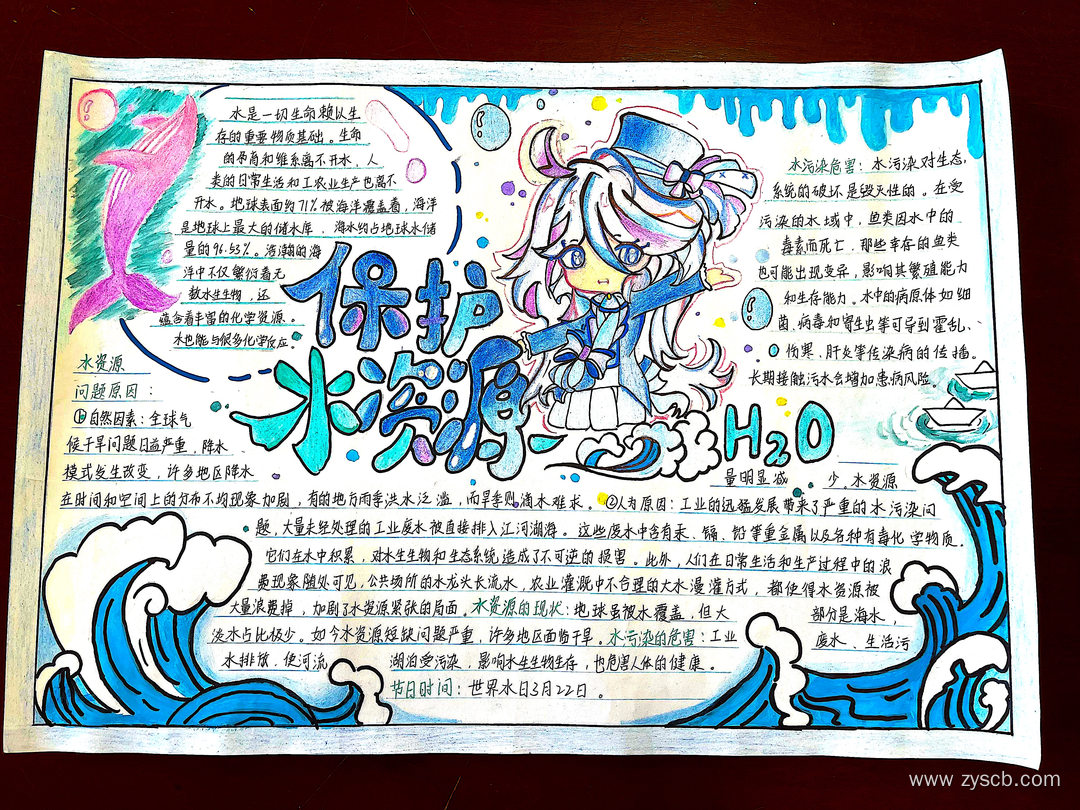 水是一切生命赖以生
存的重要物质基础。生命
的孕育和维系离不开水，人
类的日常生活和工农业生产也离不
开水。地球表面约71%被海洋覆盖着，海洋
是地球上最大的储水库，海水约占地球水储
量的96.53%。浩瀚的海
洋中不仅繁衍着无
数水生生物，还
蕴含着丰富的化学资源。
水也能与很多化学反应。
保护
水资源
H2O
水污染危害：水污染对生态
系统的破坏是毁灭性的。在受
污染的水域中，鱼类因水中的
毒素而死亡，那些幸存的鱼类
也可能出现变异，影响其繁殖能力
和生存能力。水中的病原体如细
菌、病毒和寄生虫等可导致霍乱、
伤寒、肝炎等传染病的传播。
长期接触污水会增加患病风险。
水资源
问题原因：
①自然因素：全球气
候干旱问题日益严重，降水
模式发生改变，许多地区降水 量明显减 少，水资源
在时间和空间上的分布不均现象加剧，有的地方雨季洪水泛滥，而旱季则滴水难求。②人为原因：工业的迅猛发展带来了严重的水污染问
题，大量未经处理的工业废水被直接排入江河湖海。这些废水中含有汞、镉、铅等重金属以及各种有毒化学物质。
它们在水中积累，对水生生物和生态系统造成了不可逆的损害。此外，人们在日常生活和生产过程中的浪
费现象随处可见，公共场所的水龙头长流水，农业灌溉中不合理的大水漫灌方式，都使得水资源被
大量浪费掉，加剧了水资源紧张的局面。水资源的现状：地球虽被水覆盖，但大 部分是海水，
淡水占比极少。如今水资源短缺问题严重，许多地区面临干旱。水污染的危害：工业 废水、生活污
水排放，使河流 湖泊受污染，影响水生生物生存，也危害人体的健康。
节日时间：世界水日3月22日。
www.zyscb.com